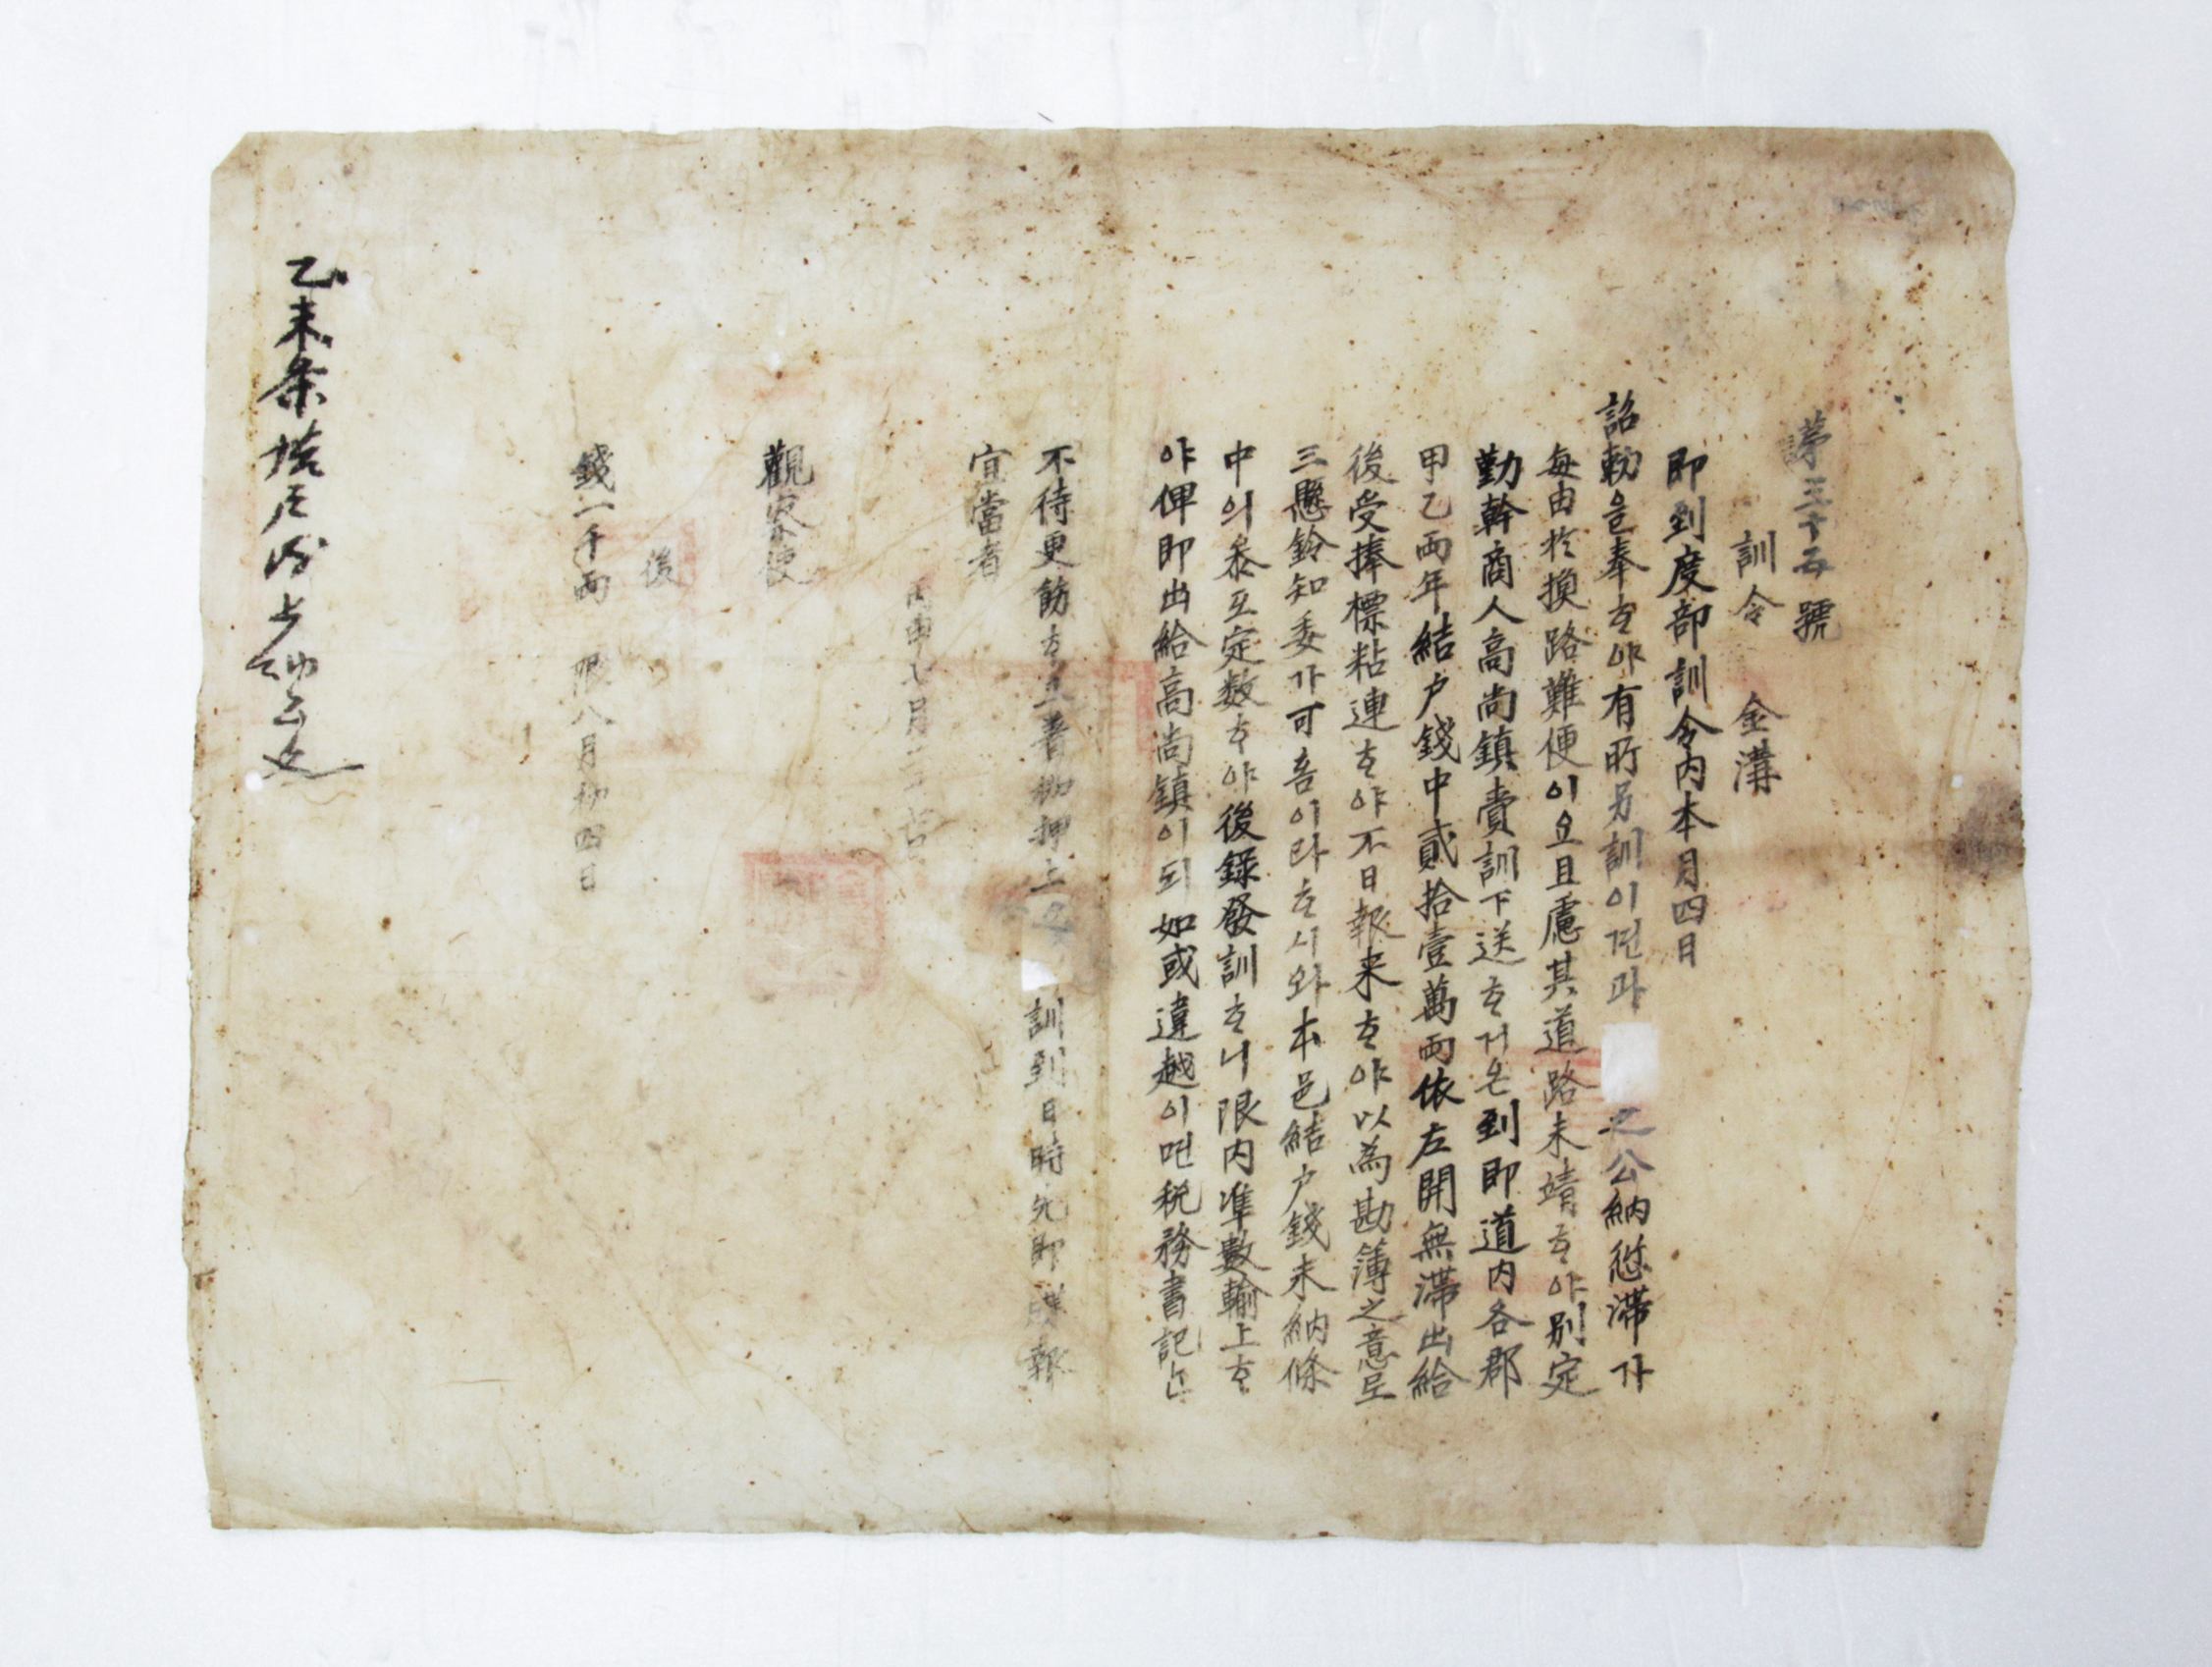 第三十五號
訓令 金溝
即到度部訓令內本月四日
詔勅을奉ᄒᆞ야有所另訓이던과 之公納愆滯가
每由於換路難便이요且慮其道路未靖ᄒᆞ야別定
勤幹商人高尚鎮賫訓下送ᄒᆞ거온到即道內各郡
甲乙兩年結戶錢中貳拾壹萬兩依左開無滯出給
後受捧標粘連ᄒᆞ야不日報来ᄒᆞ야以為勘簿之意로
三懸鈴知委가可흠이라ᄒᆞ시와本邑結戶錢未納條
中의叅互定數ᄒᆞ야後錄發訓ᄒᆞ니限內準數輸上ᄒᆞ
야俾即出給高尚鎮이되如或違越이면稅務書記ᄂᆞᆫ
不待更飭ᄒᆞ고着枷押上 訓到日時先即 報
宜當者
丙申七月二十 日
觀察使
後
錢一千兩 限八月初四日
乙未条 上納公文